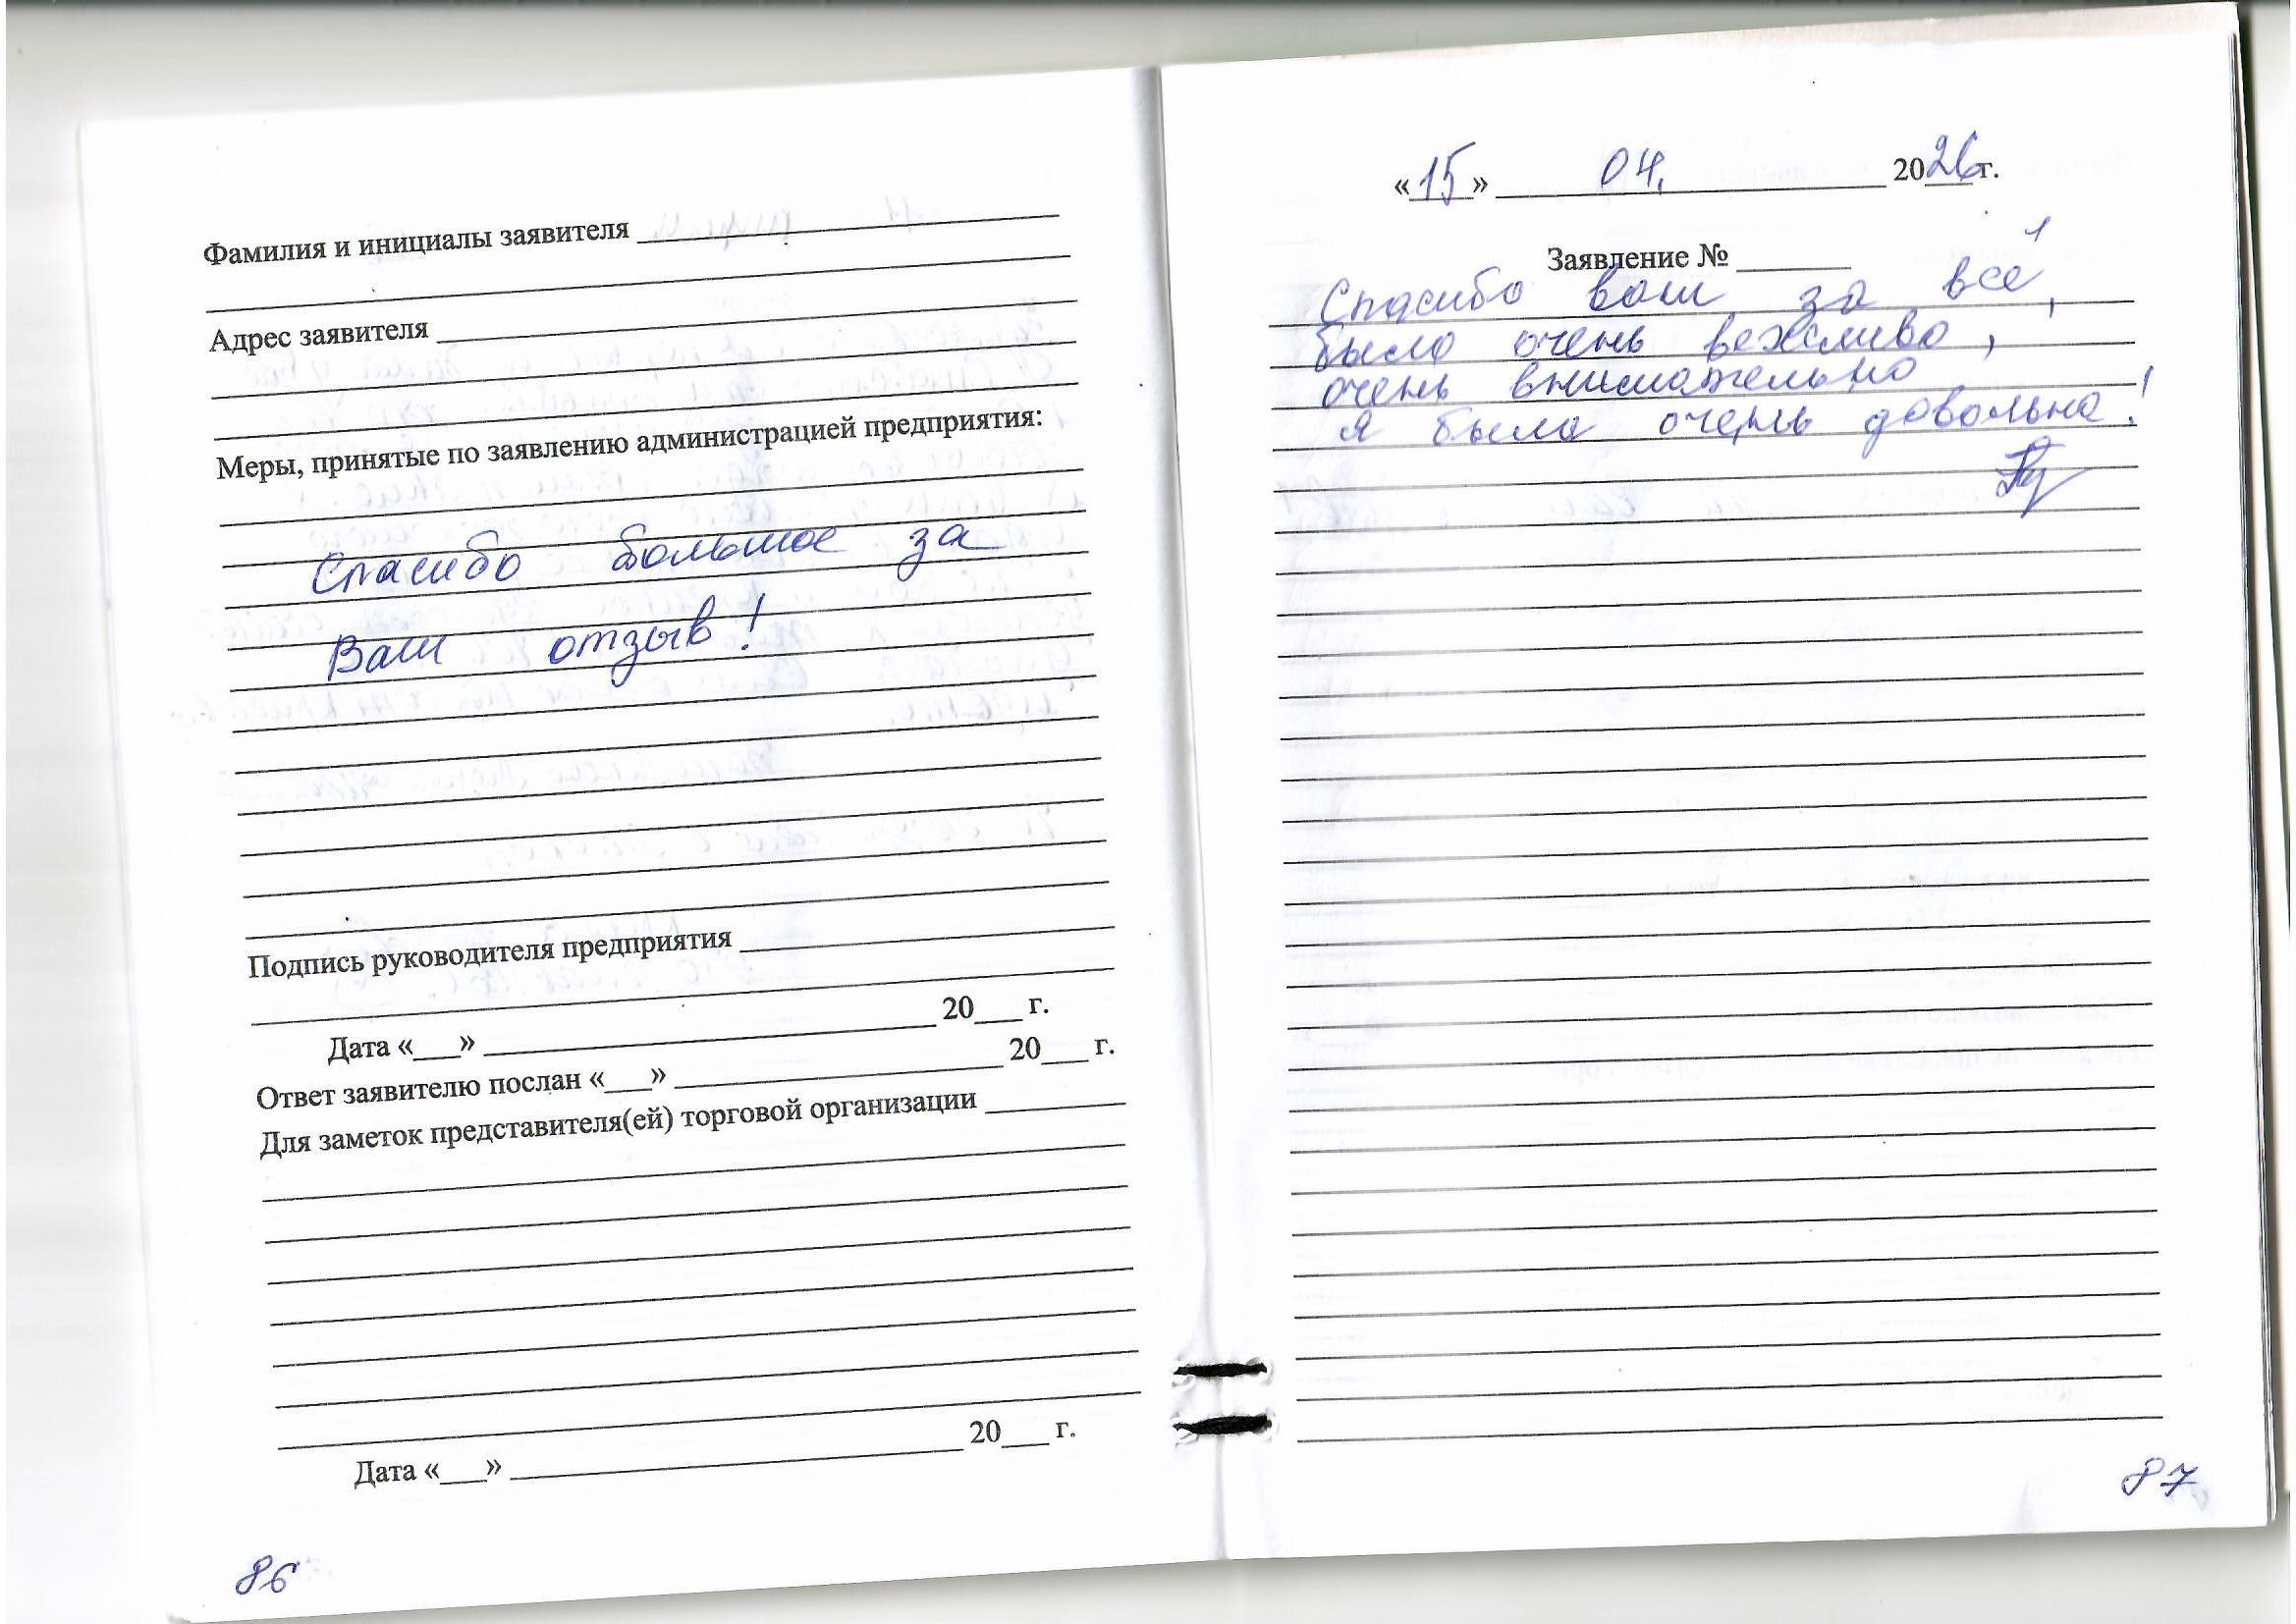 Фамилия и инициалы заявителя
Адрес заявителя
Меры, принятые по заявлению администрацией предприятия:
Спасибо большое за
Ваш отзыв!
Подпись руководителя предприятия
Дата «___» 20___ г.
Ответ заявителю послан «___» 20___ г.
Для заметок представителя(ей) торговой организации
Дата «___» 20___ г.
86
«15» 04. 2026г.
Заявление №
Спасибо вам за всё,
было очень вежливо,
очень внимательно
я была очень довольна!
87